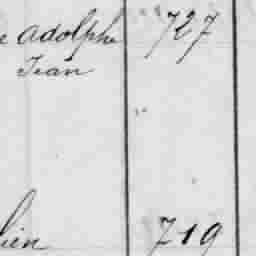 e Adolphe 727
Jean
lien 719